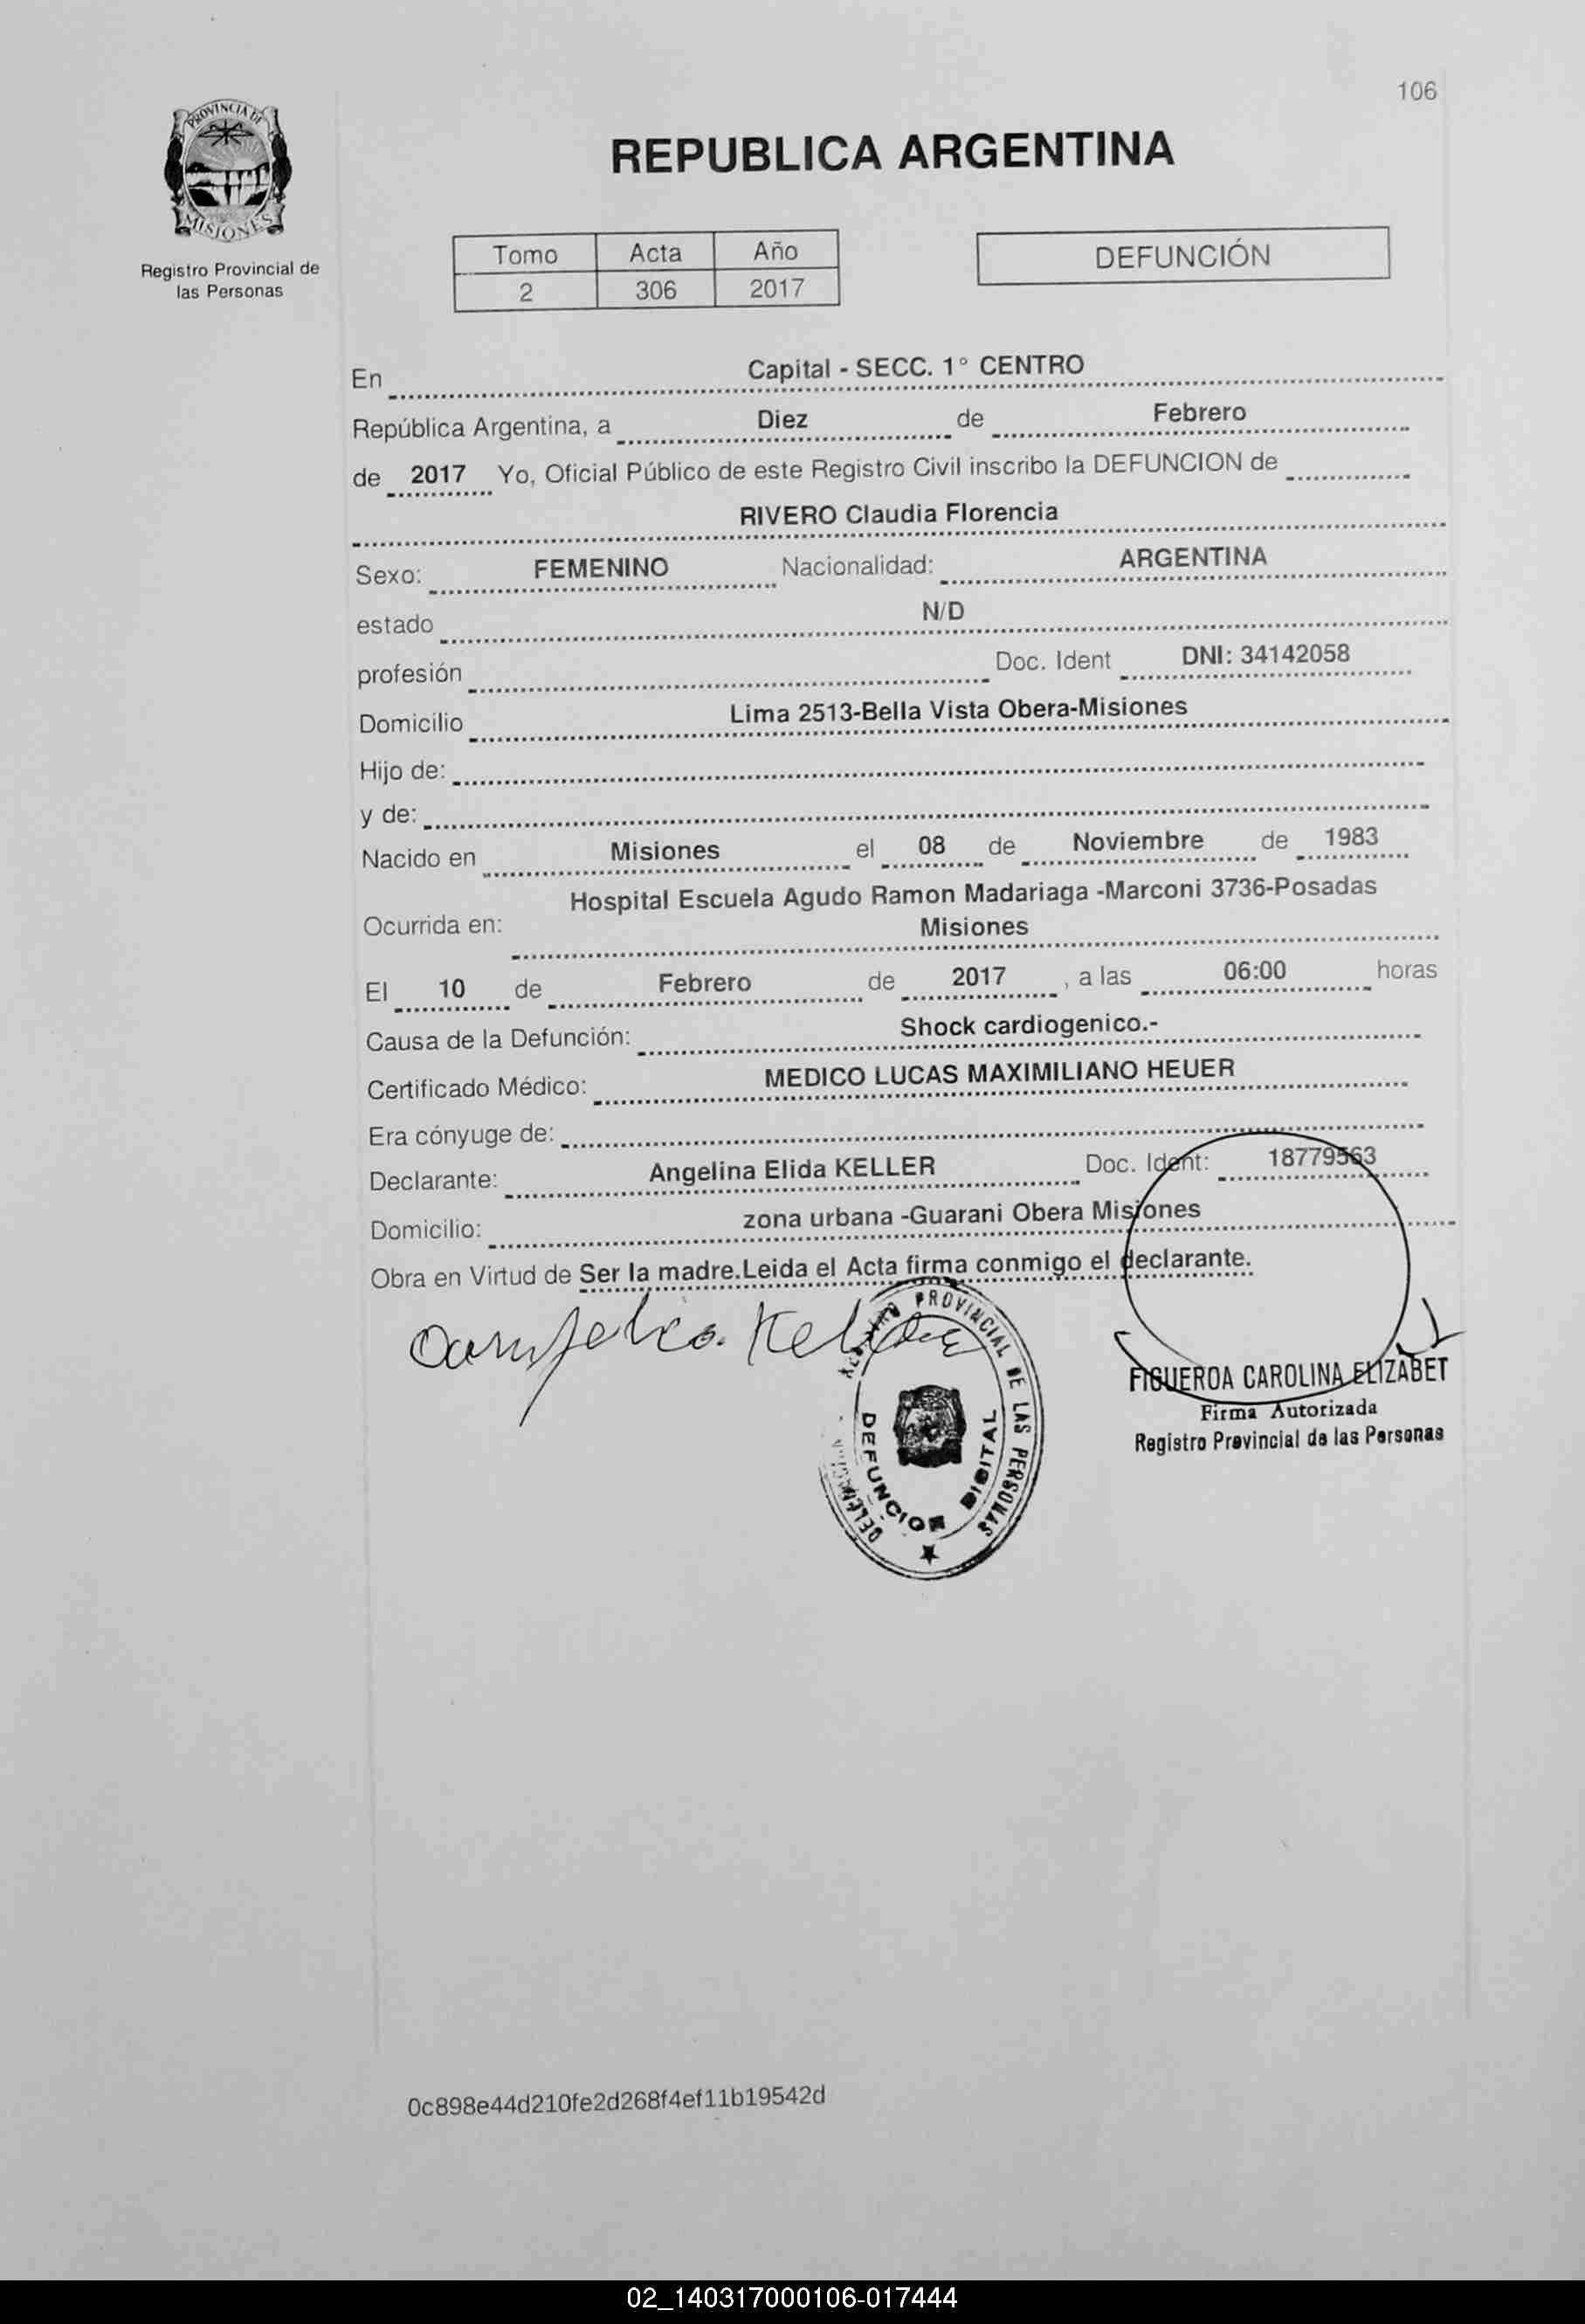 106
PROVINCIA DE
MISIONES
Registro Provincial de
las Personas
REPUBLICA ARGENTINA
Tomo Acta Año
2 306 2017
DEFUNCIÓN
En Capital - SECC. 1° CENTRO
República Argentina, a Diez de Febrero
de 2017 Yo, Oficial Público de este Registro Civil inscribo la DEFUNCION de
RIVERO Claudia Florencia
Sexo: FEMENINO Nacionalidad: ARGENTINA
estado N/D
profesión Doc. Ident DNI: 34142058
Domicilio Lima 2513-Bella Vista Obera-Misiones
Hijo de:
y de:
Nacido en Misiones el 08 de Noviembre de 1983
Ocurrida en: Hospital Escuela Agudo Ramon Madariaga -Marconi 3736-Posadas
Misiones
El 10 de Febrero de 2017 , a las 06:00 horas
Causa de la Defunción: Shock cardiogenico.-
Certificado Médico: MEDICO LUCAS MAXIMILIANO HEUER
Era cónyuge de:
Declarante: Angelina Elida KELLER Doc. Ident: 18779563
Domicilio: zona urbana -Guarani Obera Misiones
Obra en Virtud de Ser la madre.Leida el Acta firma conmigo el declarante.
PROVINCIAL DE LAS PERSONAS
DEFUNCION DIGITAL
FIGUEROA CAROLINA ELIZABET
Firma Autorizada
Registro Provincial de las Personas
0c898e44d210fe2d268f4ef11b19542d
02_140317000106-017444